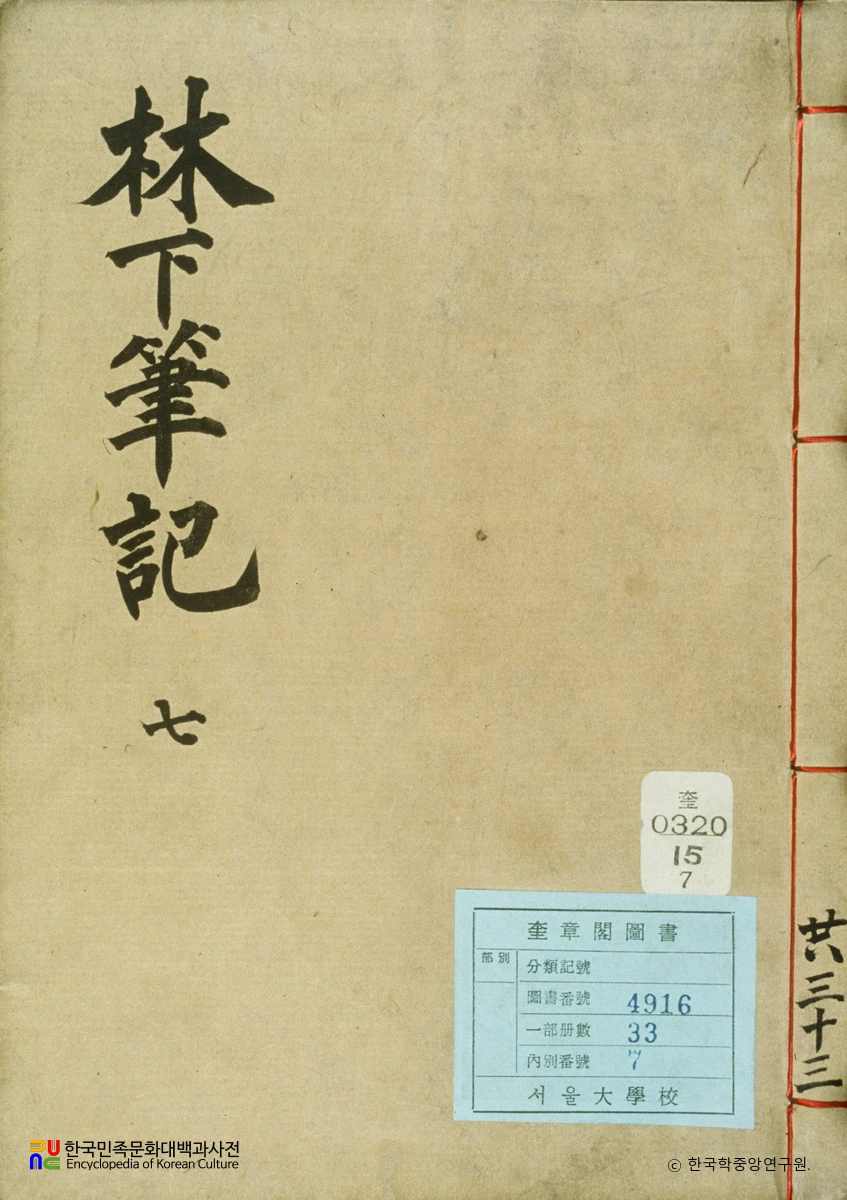 林下筆記 七
共三十三
奎
0320
15
7
奎章閣圖書
部別
分類記號
圖書番號 4916
一部册數 33
內別番號 7
서울大學校
한국민족문화대백과사전
Encyclopedia of Korean Culture
© 한국학중앙연구원.